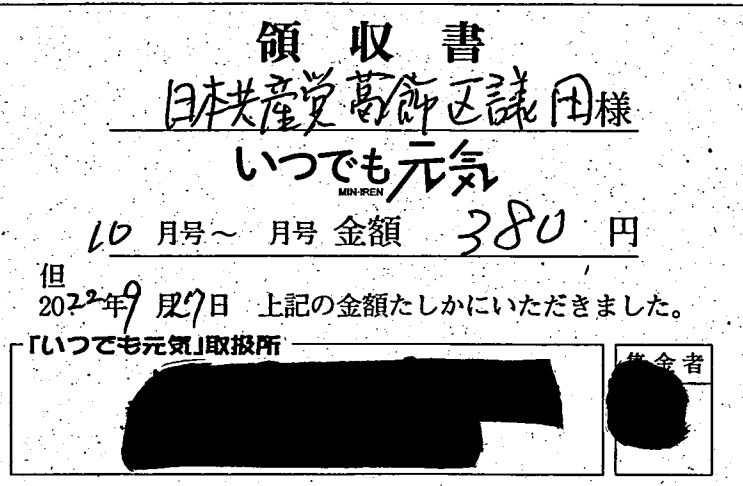 領収書
日本共産党葛飾区議団様
いつでも元気
MIN-IREN
10月号～ 月号 金額 380円
但
2022年9月27日 上記の金額たしかにいただきました。
「いつでも元気」取扱所
集金者